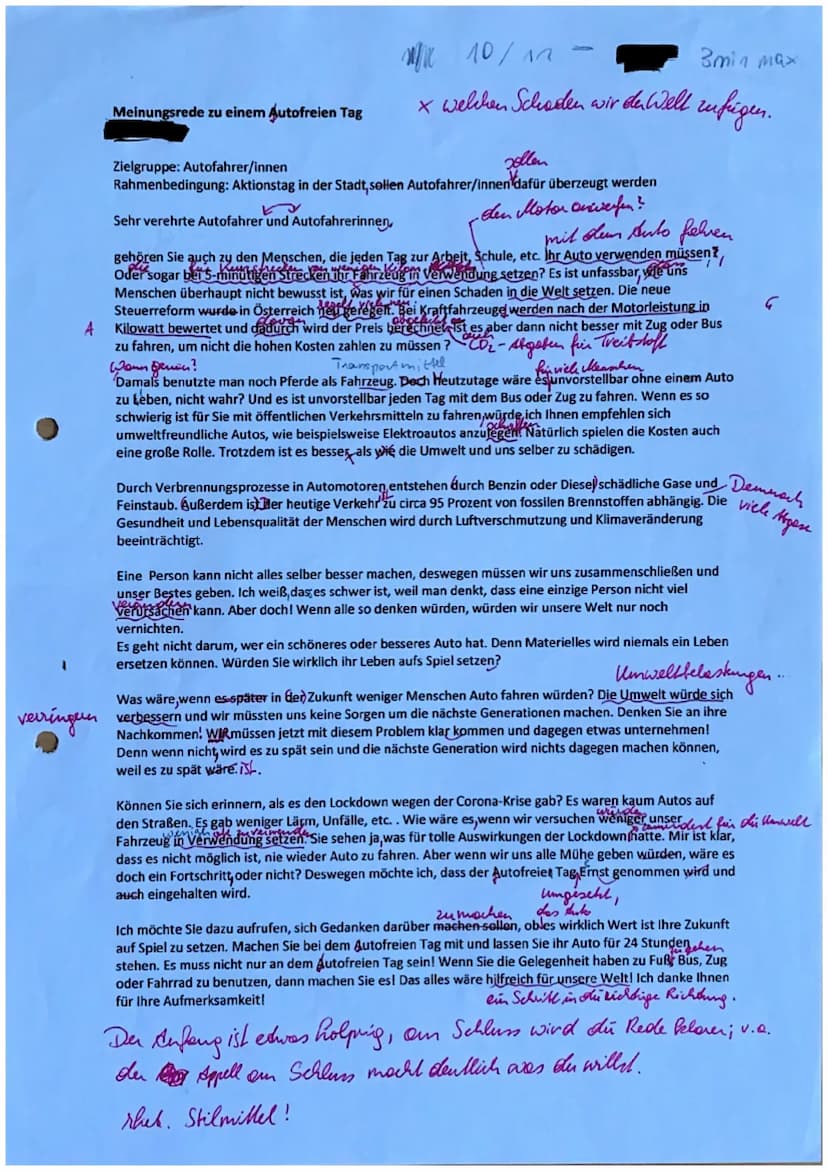 10/12 - 3min max
x welchen Schaden wir der Welt zufügen.
Meinungsrede zu einem Autofreien Tag
Zielgruppe: Autofahrer/innen
sollen
Rahmenbedingung: Aktionstag in der Stadt, sollen Autofahrer/innen dafür überzeugt werden
Sehr verehrte Autofahrer und Autofahrerinnen,
den Motor anwerfen?
mit dem Auto fahren
gehören Sie auch zu den Menschen, die jeden Tag zur Arbeit, Schule, etc. Ihr Auto verwenden müssen?
Oder sogar bei 5-minutigen Strecken ihr Fahrzeug in Verwendung setzen? Es ist unfassbar, wie uns
Menschen überhaupt nicht bewusst ist, was wir für einen Schaden in die Welt setzen. Die neue
Steuerreform wurde in Österreich neu geregelt. Bei Kraftfahrzeuge werden nach der Motorleistung in
A Kilowatt bewertet und dadurch wird der Preis berechnet. Ist es aber dann nicht besser mit Zug oder Bus
zu fahren, um nicht die hohen Kosten zahlen zu müssen? auch CO2-Abgaben für Treibstoff
Wann genau? Transportmittel für viele Menschen
Damals benutzte man noch Pferde als Fahrzeug. Doch Heutzutage wäre es unvorstellbar ohne einem Auto
zu Leben, nicht wahr? Und es ist unvorstellbar jeden Tag mit dem Bus oder Zug zu fahren. Wenn es so
schwierig ist für Sie mit öffentlichen Verkehrsmitteln zu fahren, würde ich Ihnen empfehlen sich
schaffen
umweltfreundliche Autos, wie beispielsweise Elektroautos anzulegen! Natürlich spielen die Kosten auch
eine große Rolle. Trotzdem ist es besser, als wie die Umwelt und uns selber zu schädigen.
Durch Verbrennungsprozesse in Automotoren entstehen (durch Benzin oder Diesel) schädliche Gase und Demnach
Feinstaub. (Außerdem is) Der heutige Verkehr zu circa 95 Prozent von fossilen Brennstoffen abhängig. Die viele Abgase
Gesundheit und Lebensqualität der Menschen wird durch Luftverschmutzung und Klimaveränderung
beeinträchtigt.
Eine Person kann nicht alles selber besser machen, deswegen müssen wir uns zusammenschließen und
unser Bestes geben. Ich weiß, das es schwer ist, weil man denkt, dass eine einzige Person nicht viel
verändern
verursachen kann. Aber doch! Wenn alle so denken würden, würden wir unsere Welt nur noch
vernichten.
Es geht nicht darum, wer ein schöneres oder besseres Auto hat. Denn Materielles wird niemals ein Leben
ersetzen können. Würden Sie wirklich ihr Leben aufs Spiel setzen?
Umweltbelastungen..
Was wäre, wenn es später in (der) Zukunft weniger Menschen Auto fahren würden? Die Umwelt würde sich
verringern verbessern und wir müssten uns keine Sorgen um die nächste Generationen machen. Denken Sie an ihre
Nachkommen! WIR müssen jetzt mit diesem Problem klar kommen und dagegen etwas unternehmen!
Denn wenn nicht, wird es zu spät sein und die nächste Generation wird nichts dagegen machen können,
weil es zu spät wäre. ist.
Können Sie sich erinnern, als es den Lockdown wegen der Corona-Krise gab? Es waren kaum Autos auf
den Straßen. Es gab weniger Lärm, Unfälle, etc. . Wie wäre es, wenn wir versuchen weniger unser
würden
zumindest für die Umwelt
weniger oft zu verwenden
Fahrzeug in Verwendung setzen. Sie sehen ja, was für tolle Auswirkungen der Lockdown hatte. Mir ist klar,
dass es nicht möglich ist, nie wieder Auto zu fahren. Aber wenn wir uns alle Mühe geben würden, wäre es
doch ein Fortschritt, oder nicht? Deswegen möchte ich, dass der Autofreier Tag Ernst genommen wird und
auch eingehalten wird. umgesetzt,
zu machen das Auto
Ich möchte Sie dazu aufrufen, sich Gedanken darüber machen sollen, ob es wirklich Wert ist Ihre Zukunft
auf Spiel zu setzen. Machen Sie bei dem Autofreien Tag mit und lassen Sie ihr Auto für 24 Stunden
stehen. Es muss nicht nur an dem Autofreien Tag sein! Wenn Sie die Gelegenheit haben zu Fuß, Bus, Zug
zu gehen
oder Fahrrad zu benutzen, dann machen Sie es! Das alles wäre hilfreich für unsere Welt! Ich danke Ihnen
für Ihre Aufmerksamkeit! ein Schritt in die richtige Richtung.
Der Anfang ist etwas holprig, am Schluss wird die Rede klarer; v.a.
der Appell am Schluss macht deutlich was du willst.
rhet. Stilmittel!